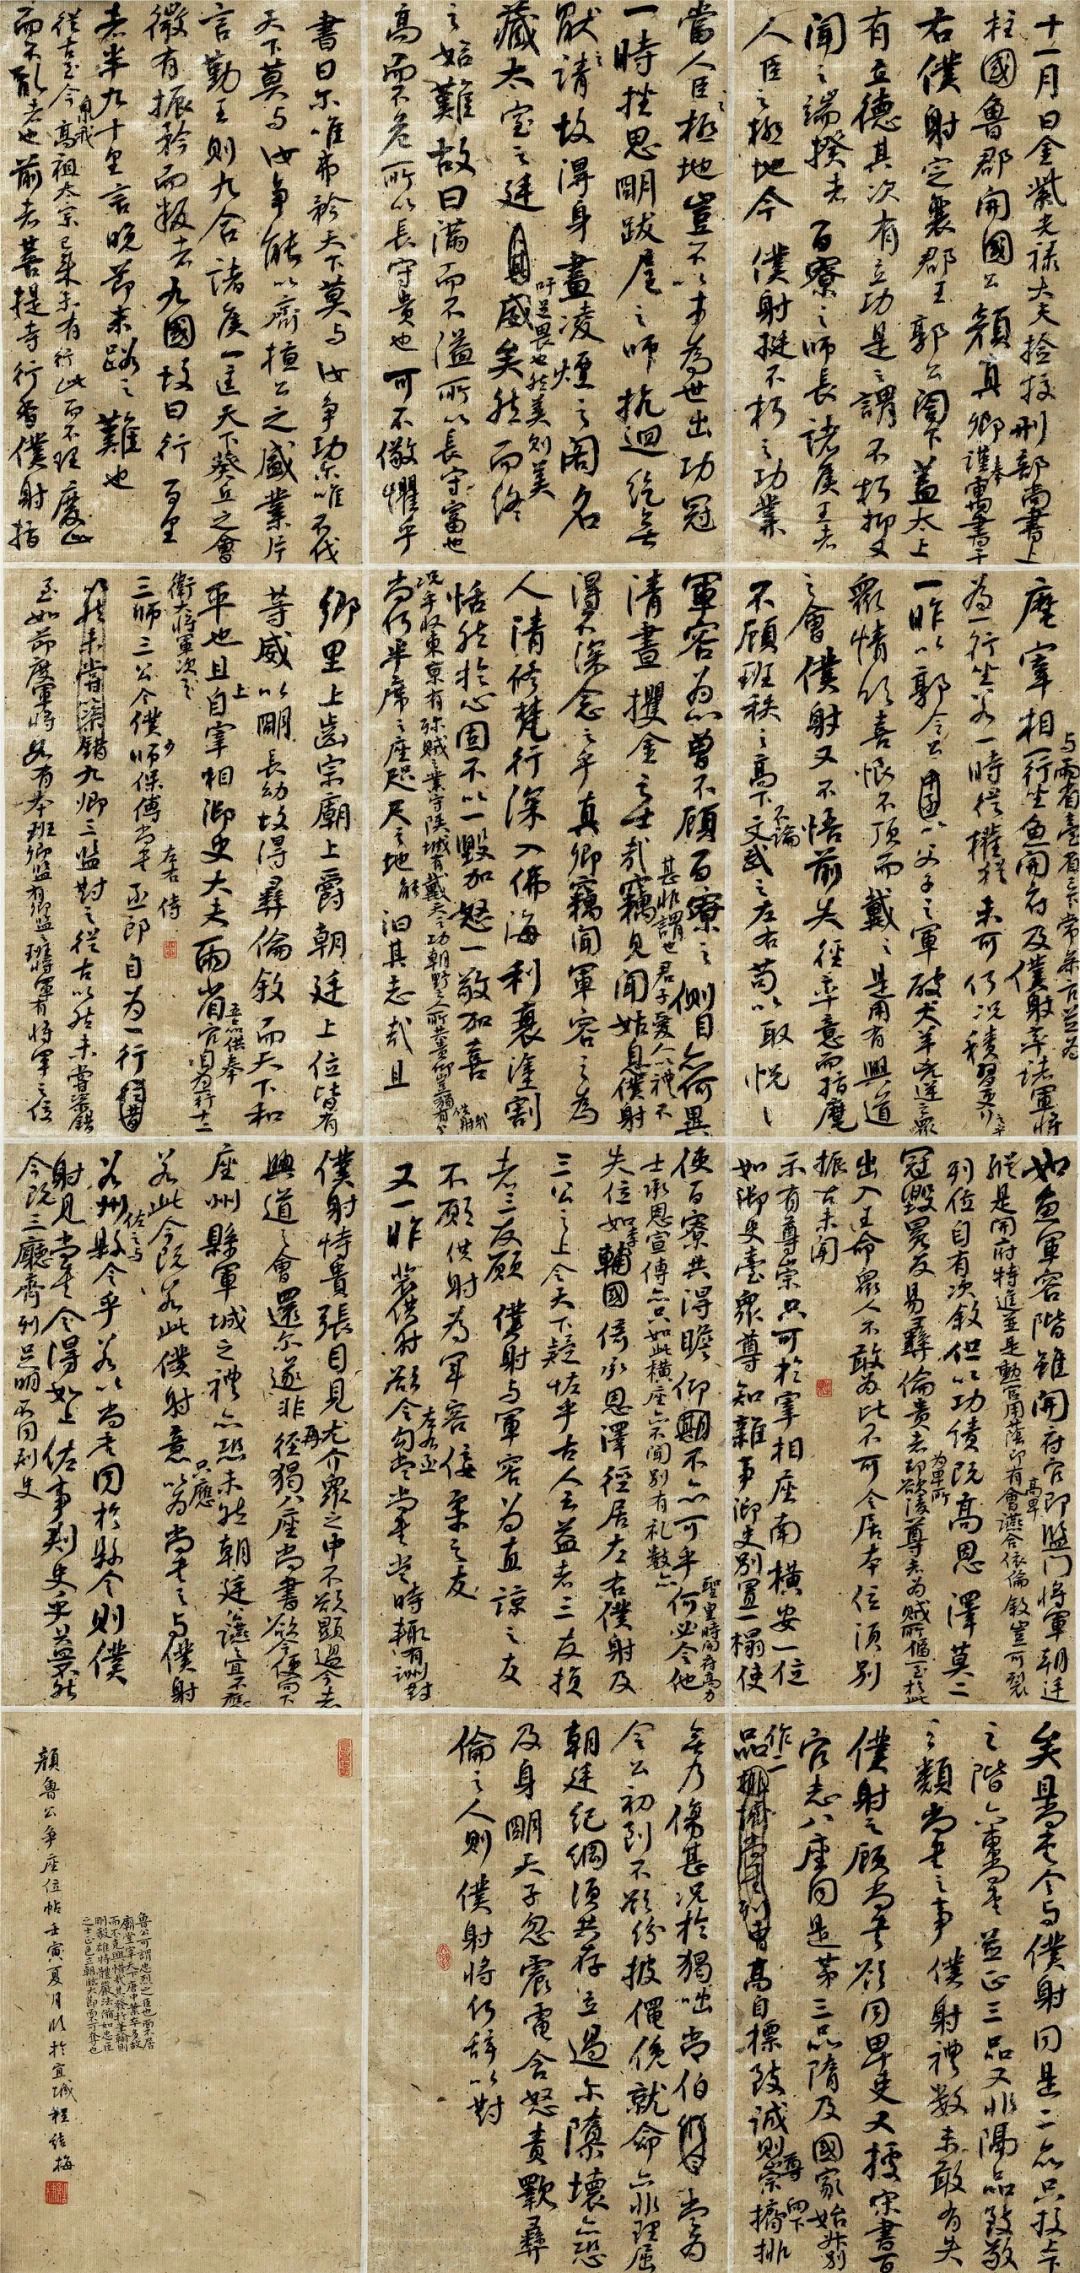 十一月日金紫光祿大夫檢校刑部尚書上
柱國魯郡開國公顏真卿謹奉寓書于
右僕射定襄郡王郭公閣下蓋太上
有立德其次有立功是之謂不朽抑又
聞之端揆者百寮之師長諸侯王者
人臣之極地今僕射挺不朽之功業
當人臣極地豈不以才為世出功冠
一時挫思明跋扈之師抗迴紇無
猒之請故得身畫凌煙之閣名
藏太室之廷吁足畏也然美則美
矣然而終
之始難故曰滿而不溢所以長守富也
高而不危所以長守貴也可不儆懼乎
書曰爾唯弗矜天下莫與汝爭功爾唯不伐
天下莫與汝爭能以齊桓公之盛業片
言勤王則九合諸侯一匡天下葵丘之會
微有振矜而叛者九國故曰行百里
者半九十里言晚節末路之難也
從古至今泉我高祖太宗已來未有行此而不理廢此
而不亂者也前者菩提寺行香僕射指
麾宰相與兩省臺省已下常參官並為
一行坐魚開府及僕射率諸軍將
為一行坐若一時從權猶未可何況積習更行之乎
一昨以郭令公以父子之軍破犬羊兇逆之眾
眾情欣喜恨不頂而戴之是用有興道
之會僕射又不悟前失徑率意而指麾
不顧班秩之高下不論文武之左右苟以取悅
軍容為心曾不顧百寮之側目亦何異
清晝攫金之士哉甚非謂也君子愛人以禮不
竊見聞姑息僕射
得不深念之乎真卿竊聞軍容之為
人清修梵行深入佛海利衰塗割
恬然於心固不以一毀加怒一敬加喜
況乎收東京有殄賊之業守陝城有戴天之功朝野之人所共貴仰豈獨有分於僕射哉
尚何半席之座咫尺之地能汩其志哉且
鄉里上齒宗廟上爵朝廷上位皆有
等威以明長幼故得彝倫敘而天下和
平也且上自宰相御史大夫兩省五品以上供奉官自為一行十二
衛大將軍次之
三師三公令僕少師保傅尚書左右丞侍郎自為一行
九卿三監對之從古以然未嘗參錯
至如節度軍將各有本班卿監有卿監之班將軍有將軍之位
如魚軍容階雖開府官即監門將軍朝廷
列位自有次敘但以功績既高恩澤莫二
縱是開府特進並是勳官用蔭即有高卑會讌合依倫敘豈可裂
冠毀冕反易彝倫貴者為卑所凌尊者為賊所偪一至於此
出入王命眾人不敢為比不可令居本位須別
振古未聞
示有尊崇只可於宰相座南橫安一位
如御史臺眾尊知雜事御史別置一榻使
使百寮共得瞻仰不亦可乎
聖皇時開府高力
士承恩宣傳亦只如此橫座亦不聞別有禮數亦何必令他
失位如李輔國倚承恩澤徑居左右僕射及
三公之上令天下疑怪乎古人云益者三友損
者三友願僕射與軍容為直諒之友
不願僕射為軍容佞柔之友
又一昨裴僕射欲令左右丞勾當尚書當時輒有酬對
僕射恃貴張目見尤介眾之中不欲顯過今者
興道之會還爾遂非再猖八座尚書欲令便向下
座州縣軍城之禮亦恐未然朝廷讌宜不應
若此今既若此僕射意只應以為尚書之與僕射
若州佐之與縣令乎若以尚書同於縣令則僕
射見尚書令得如上佐事刺史乎益不然
今既三廳齊列足明不同刺史
矣且尚書令與僕射同是二品只校上下
之階六曹尚書並正三品又非隔品致敬
之類尚書之事僕射禮數未敢有失
僕射之顧尚書欲同卑吏又據宋書百
官志八座同是第三品隋及國家始升別
作二
品高自標致誠則尊崇向下擠排
無乃傷甚況於猖咄尚伯當為
令公初到不欲紛披僶俛就命亦非理屈
朝廷紀綱須共存立過爾隳壞亦恐
及身明天子忽震電含怒責斁彝
倫之人則僕射將何辭以對
魯公可謂忠烈之臣也而不居
廟堂宰天下唐中業卒多故
而不克興惜哉其發於筆翰則
剛毅雄特體嚴法備如忠臣
之士正色立朝臨大節而不可奪也
顏魯公爭座位帖壬寅夏月臨於宜城程結梅